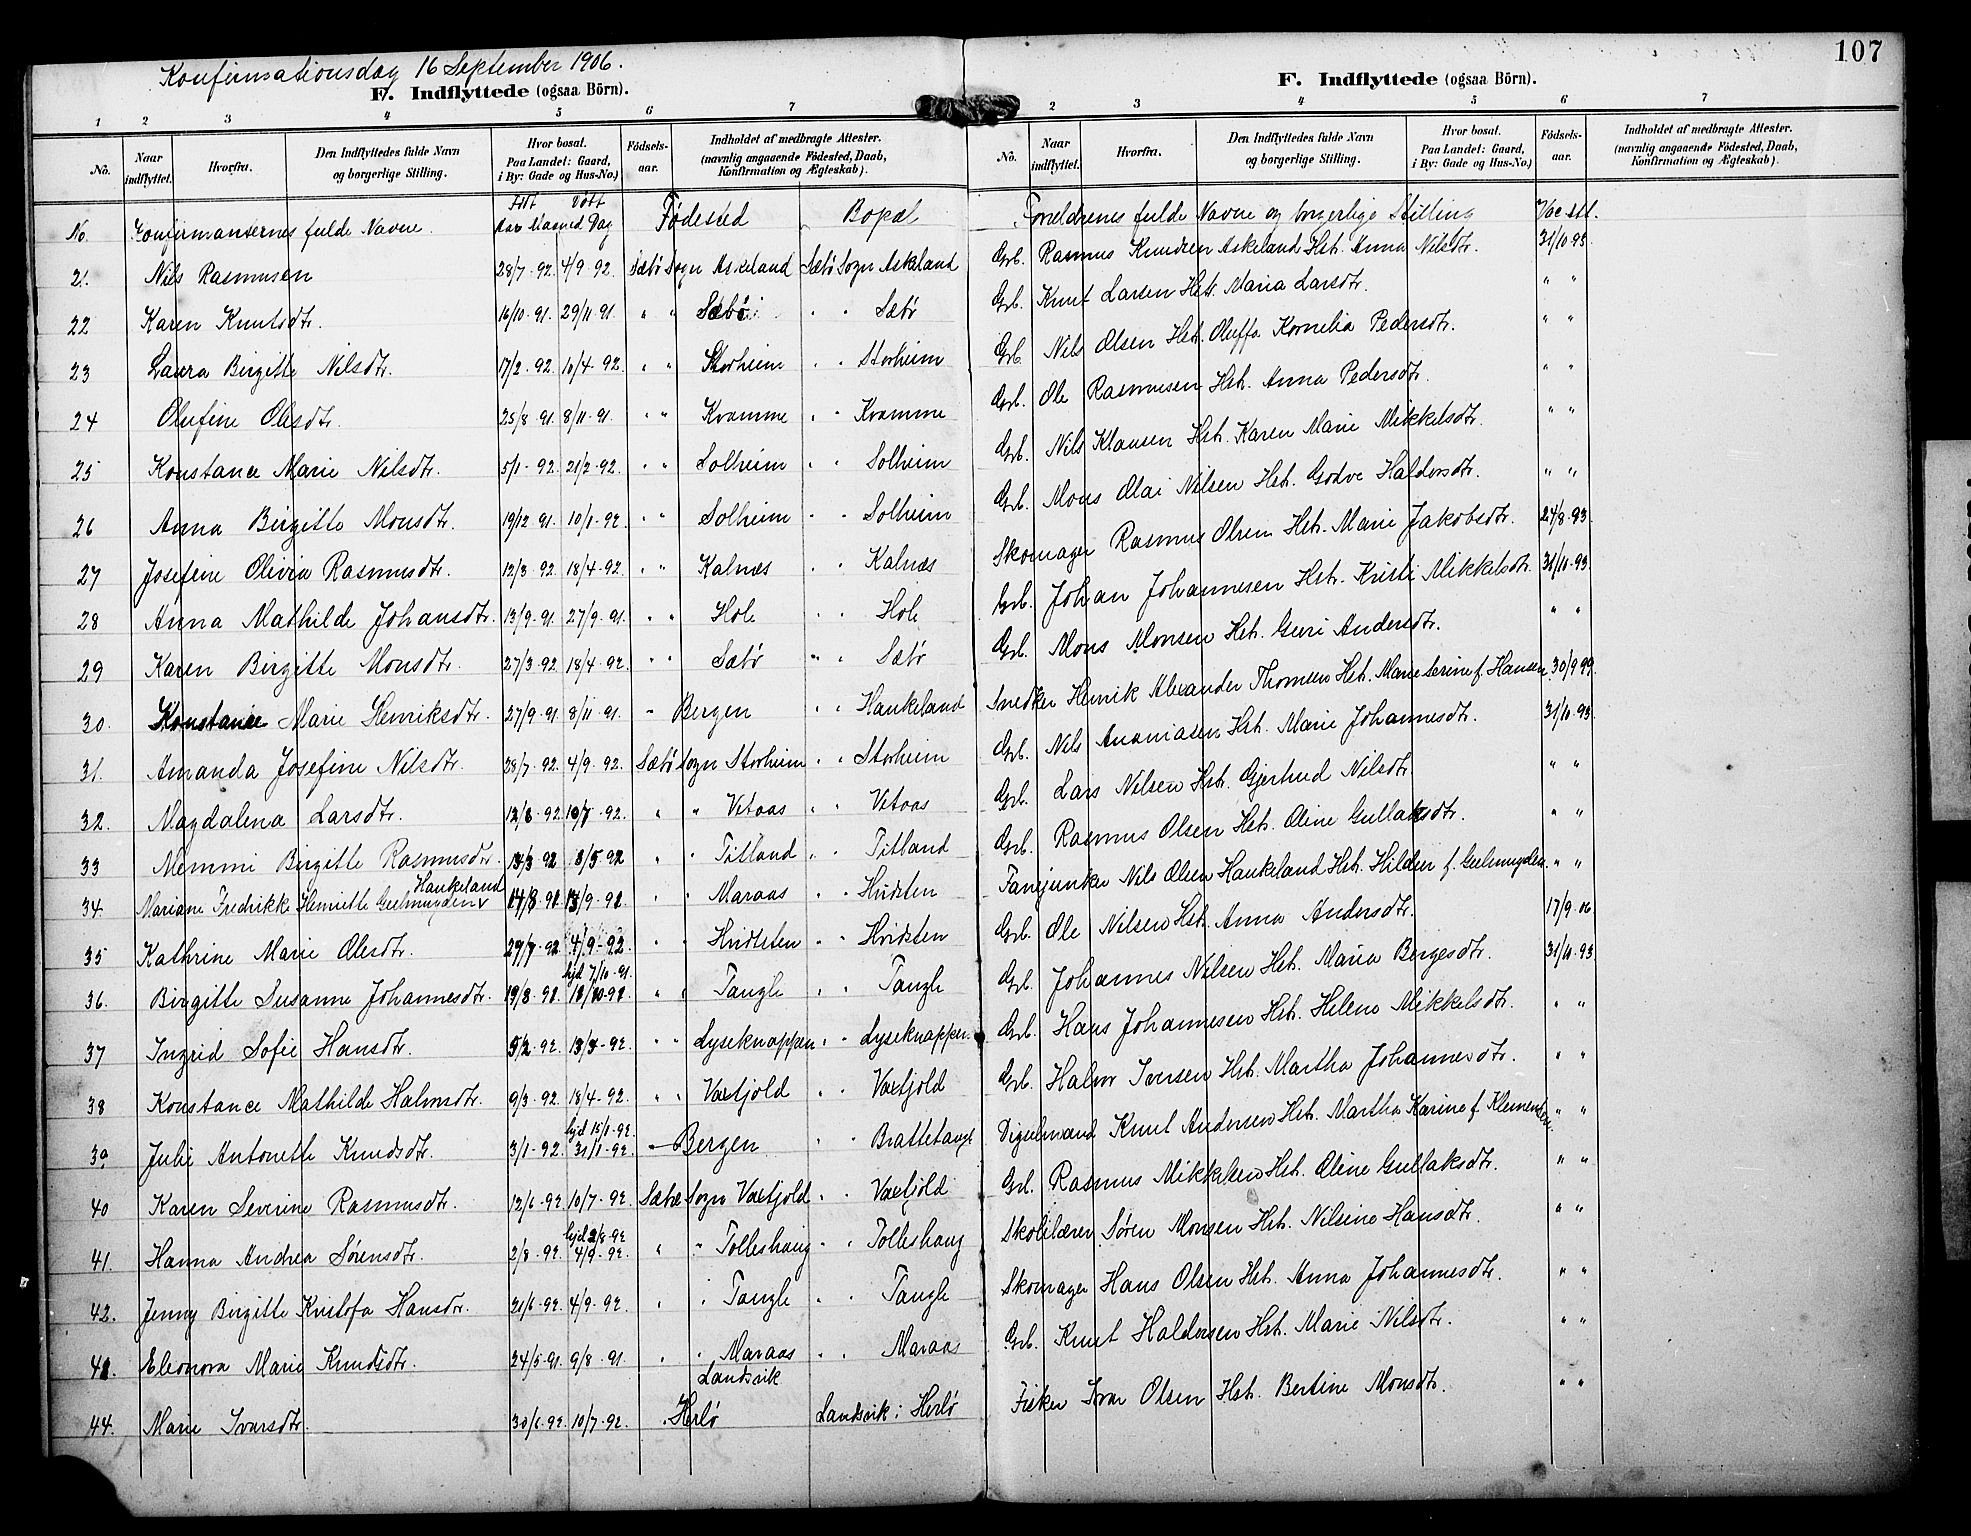 107
Konfirmationsdag 16 September 1906.
F. Indflyttede (ogsaa Börn).
F. Indflyttede (ogsaa Börn).
1 2 3 4 5 6 7
2 3 4 5 6 7
No. Naar indflyttet. Hvorfra. Den Indflyttedes fulde Navn og borgerlige Stilling. Hvor bosat. Paa Landet: Gaard, i By: Gade og Hus-No.) Födsels-aar. Indholdet af medbragte Attester. (navnlig angaaende Födested, Daab, Konfirmation og Ægteskab).
No. Naar indflyttet. Hvorfra. Den Indflyttedes fulde Navn og borgerlige Stilling. Hvor bosat. Paa Landet: Gaard, i By: Gade og Hus-No.) Födsels-aar. Indholdet af medbragte Attester. (navnlig angaaende Födested, Daab, Konfirmation og Ægteskab).
No. Konfirmanternes fulde Navne. Født Døbt Aar Maaned Dag Fødested Bopæl Foreldrenes fulde Navne og borgerlige Stilling Vac att.
21. Nils Rasmusen 28/7-92. 4/9-92. Sæbø Sogn Askeland Sæbø Sogn Askeland Grb. Rasmus Knudsen Askeland Hst. Anna Nilsdtr. 31/10-93.
22 Karen Knutsdtr. 16/10-91. 29/11-91. " " Sæbø " " Sæbø Grb. Knut Larsen Hst. Maria Larsdtr. " "
23 Laura Birgitte Nilsdtr. 17/2-92. 10/4-92. " " Storheim " " Storheim Grb. Nils Olsen Hst. Oluffa Kornelia Pedersdtr. " "
24 Olufine Olesdtr. 25/8-91. 8/11-91. " " Kvamme " " Kvamme Grb. Ole Rasmusen Hst. Anna Pedersdtr. " "
25 Konstance Marie Nilsdtr. 5/1-92. 21/2-92. " " Solheim " " Solheim Grb. Nils Klausen Hst. Karen Marie Mikkelsdtr. " "
26 Anna Birgitte Monsdtr. 19/12-91. 10/1-92. " " Solheim " " Solheim Grb. Mons Olai Nilsen Hst. Godve Haldorsdtr. " "
27 Josefine Olivia Rasmusdtr. 12/3-92. 18/4-92. " " Kalnæs " " Kalnæs Skomager Rasmus Olsen Hst. Marie Jakobsdtr. 24/8-93.
28 Anna Mathilde Johansdtr. 13/9-91. 27/9-91. " " Hole " " Hole Grb. Johan Johannesen Hst. Kristi Mikkelsdtr. 31/10-93.
29 Karen Birgitte Monsdtr. 27/3-92. 18/4-92. " " Sæbø " " Sæbø Grb. Mons Monsen Hst. Guri Andersdtr. " "
30. Konstance Marie Henriksdtr. 27/9-91. 8/11-91. " Bergen " " Haukeland Snedker Henrik Alexander Thomsen Hst. Marie Serine f. Hansen. 30/9-99.
31. Amanda Josefine Nilsdtr. 28/7-92. 4/9-92. Sæbø Sogn Storheim " " Storheim Grb. Nils Ananiasen Hst. Marie Johannesdtr. 31/10-93.
32. Magdalena Larsdtr. 12/6-92. 10/7-92. " " Vetaas " " Vetaas Grb. Lars Nilsen Hst. Gjertrud Nilsdtr. " "
33 Memmi Birgitte Rasmusdtr. 14/3-92 8/5-92 " " Titland " " Titland Grb. Rasmus Olsen Hst. Oline Gullaksdtr. " "
Haukeland
34 Mariane Fredrikke Henriette Geelmuyden 14/8-91 13/9-91 " " Maraas " " Hvidsten Fanejunker Nils Olsen Haukeland Hst. Hilda f. Geelmuyden. " "
35 Kathrine Marie Olesdtr. 27/7-92 4/9-92 " " Hvidsten " " Hvidsten Grb. Ole Nilsen Hst. Anna Andersdtr. 17/9-06.
hjd 7/10-91.
36. Birgitte Susanne Johannesdtr. 19/8-91 18/10-91 " " Tangle " " Tangle Grb. Johannes Nilsen Hst. Maria Børgesdtr. 31/10-93
37 Ingrid Sofie Hansdtr. 5/2-92. 13/3-92. " " Lyseknappen " " Lyseknappen Grb. Hans Johannesen Hst. Helene Mikkelsdtr. " "
38 Konstance Mathilde Halvorsdtr. 9/3-92 18/4-92. " " Vaxtjold " " Vaxtjold Grb. Halvor Iversen Hst. Martha Johannesdtr. " "
hjd 15/1-92.
39 Julie Antonette Knudsdtr. 3/1-92. 31/1-92. " Bergen " " Brattetangl Knut Andersen Hst. Martha Karine f. Klementsen. " "
40 Karen Severine Rasmusdtr. 12/6-92 10/7-92. Sæbø Sogn Vaxtjold " " Vaxtjold Grb. Rasmus Mikkelsen Hst. Oline Gullaksdtr. " "
hjd 2/8-92
41. Hanna Andrea Sørensdtr. 2/8-92. 4/9-92. " " Tolleshaug " " Tolleshaug Skolelærer Søren Monsen Hst. Nilsine Hansdtr. " "
42. Jenny Birgitte Kristofa Hansdtr. 21/6-92. 4/9-92. " " Tangle " " Tangle Skomager Hans Olsen Hst. Anna Johannesdtr. " "
Eleonora Marie Knudsdtr. 24/5-91. 9/8-91. " " Maraas " " Maraas Grb. Knut Haldorsen Hst. Marie Nilsdtr. " "
Landsvik
44. Marie Ivarsdtr. 30/6-92. 10/7-92. Herlø Landsvik i Herlø Fisker Ivar Olsen Hst. Bertine Monsdtr. " "